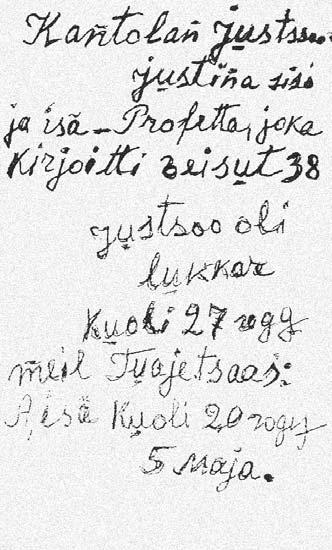 Kan̄tolan̄ justsoo
justin̄a sisi
ja isä - Profetta, joka
Kirjoitti zeisut 38
justsoo oli
lukkar
Kuoli 27 rogy
m̄eil Tuajetsaas:
A isä Kuoli 20 rogy
5 маја.